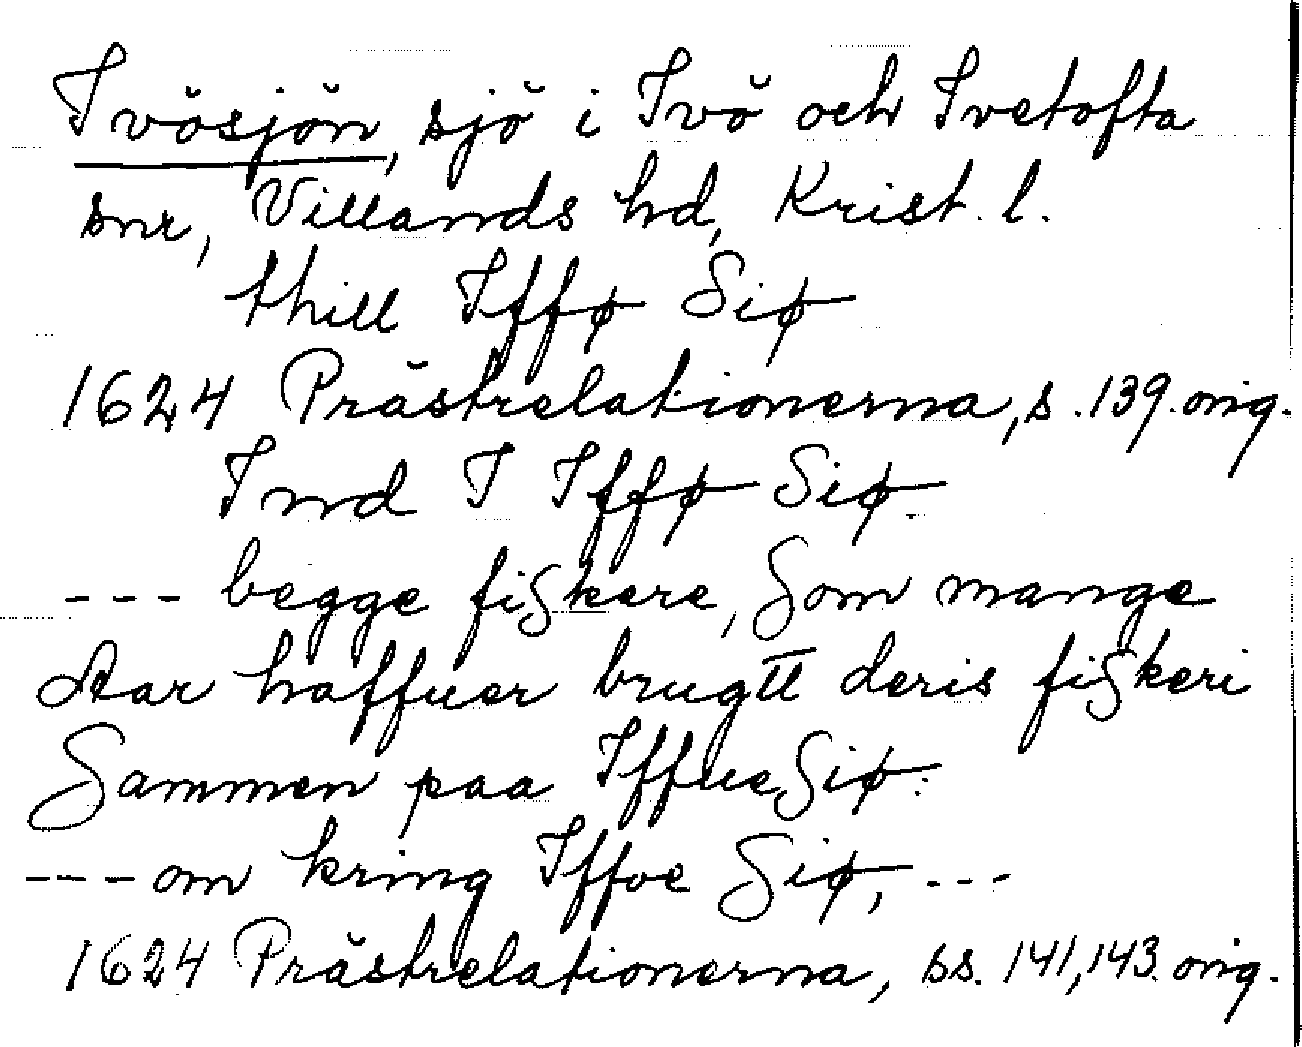 Ivösjön, sjö i Ivö och Ivetofta
snr, Villands hd, Krist. l.
thill Iffø Siø
1624 Prästrelationerna, s. 139. orig.
Ind I Iffø Siø.
--- begge fiskere, Som mange
Aar haffuer brugtt deris fiskeri
Sammen paa Iffue Siø:
--- om kring Iffoe Siø, ---
1624 Prästrelationerna, ss. 141, 143. orig.